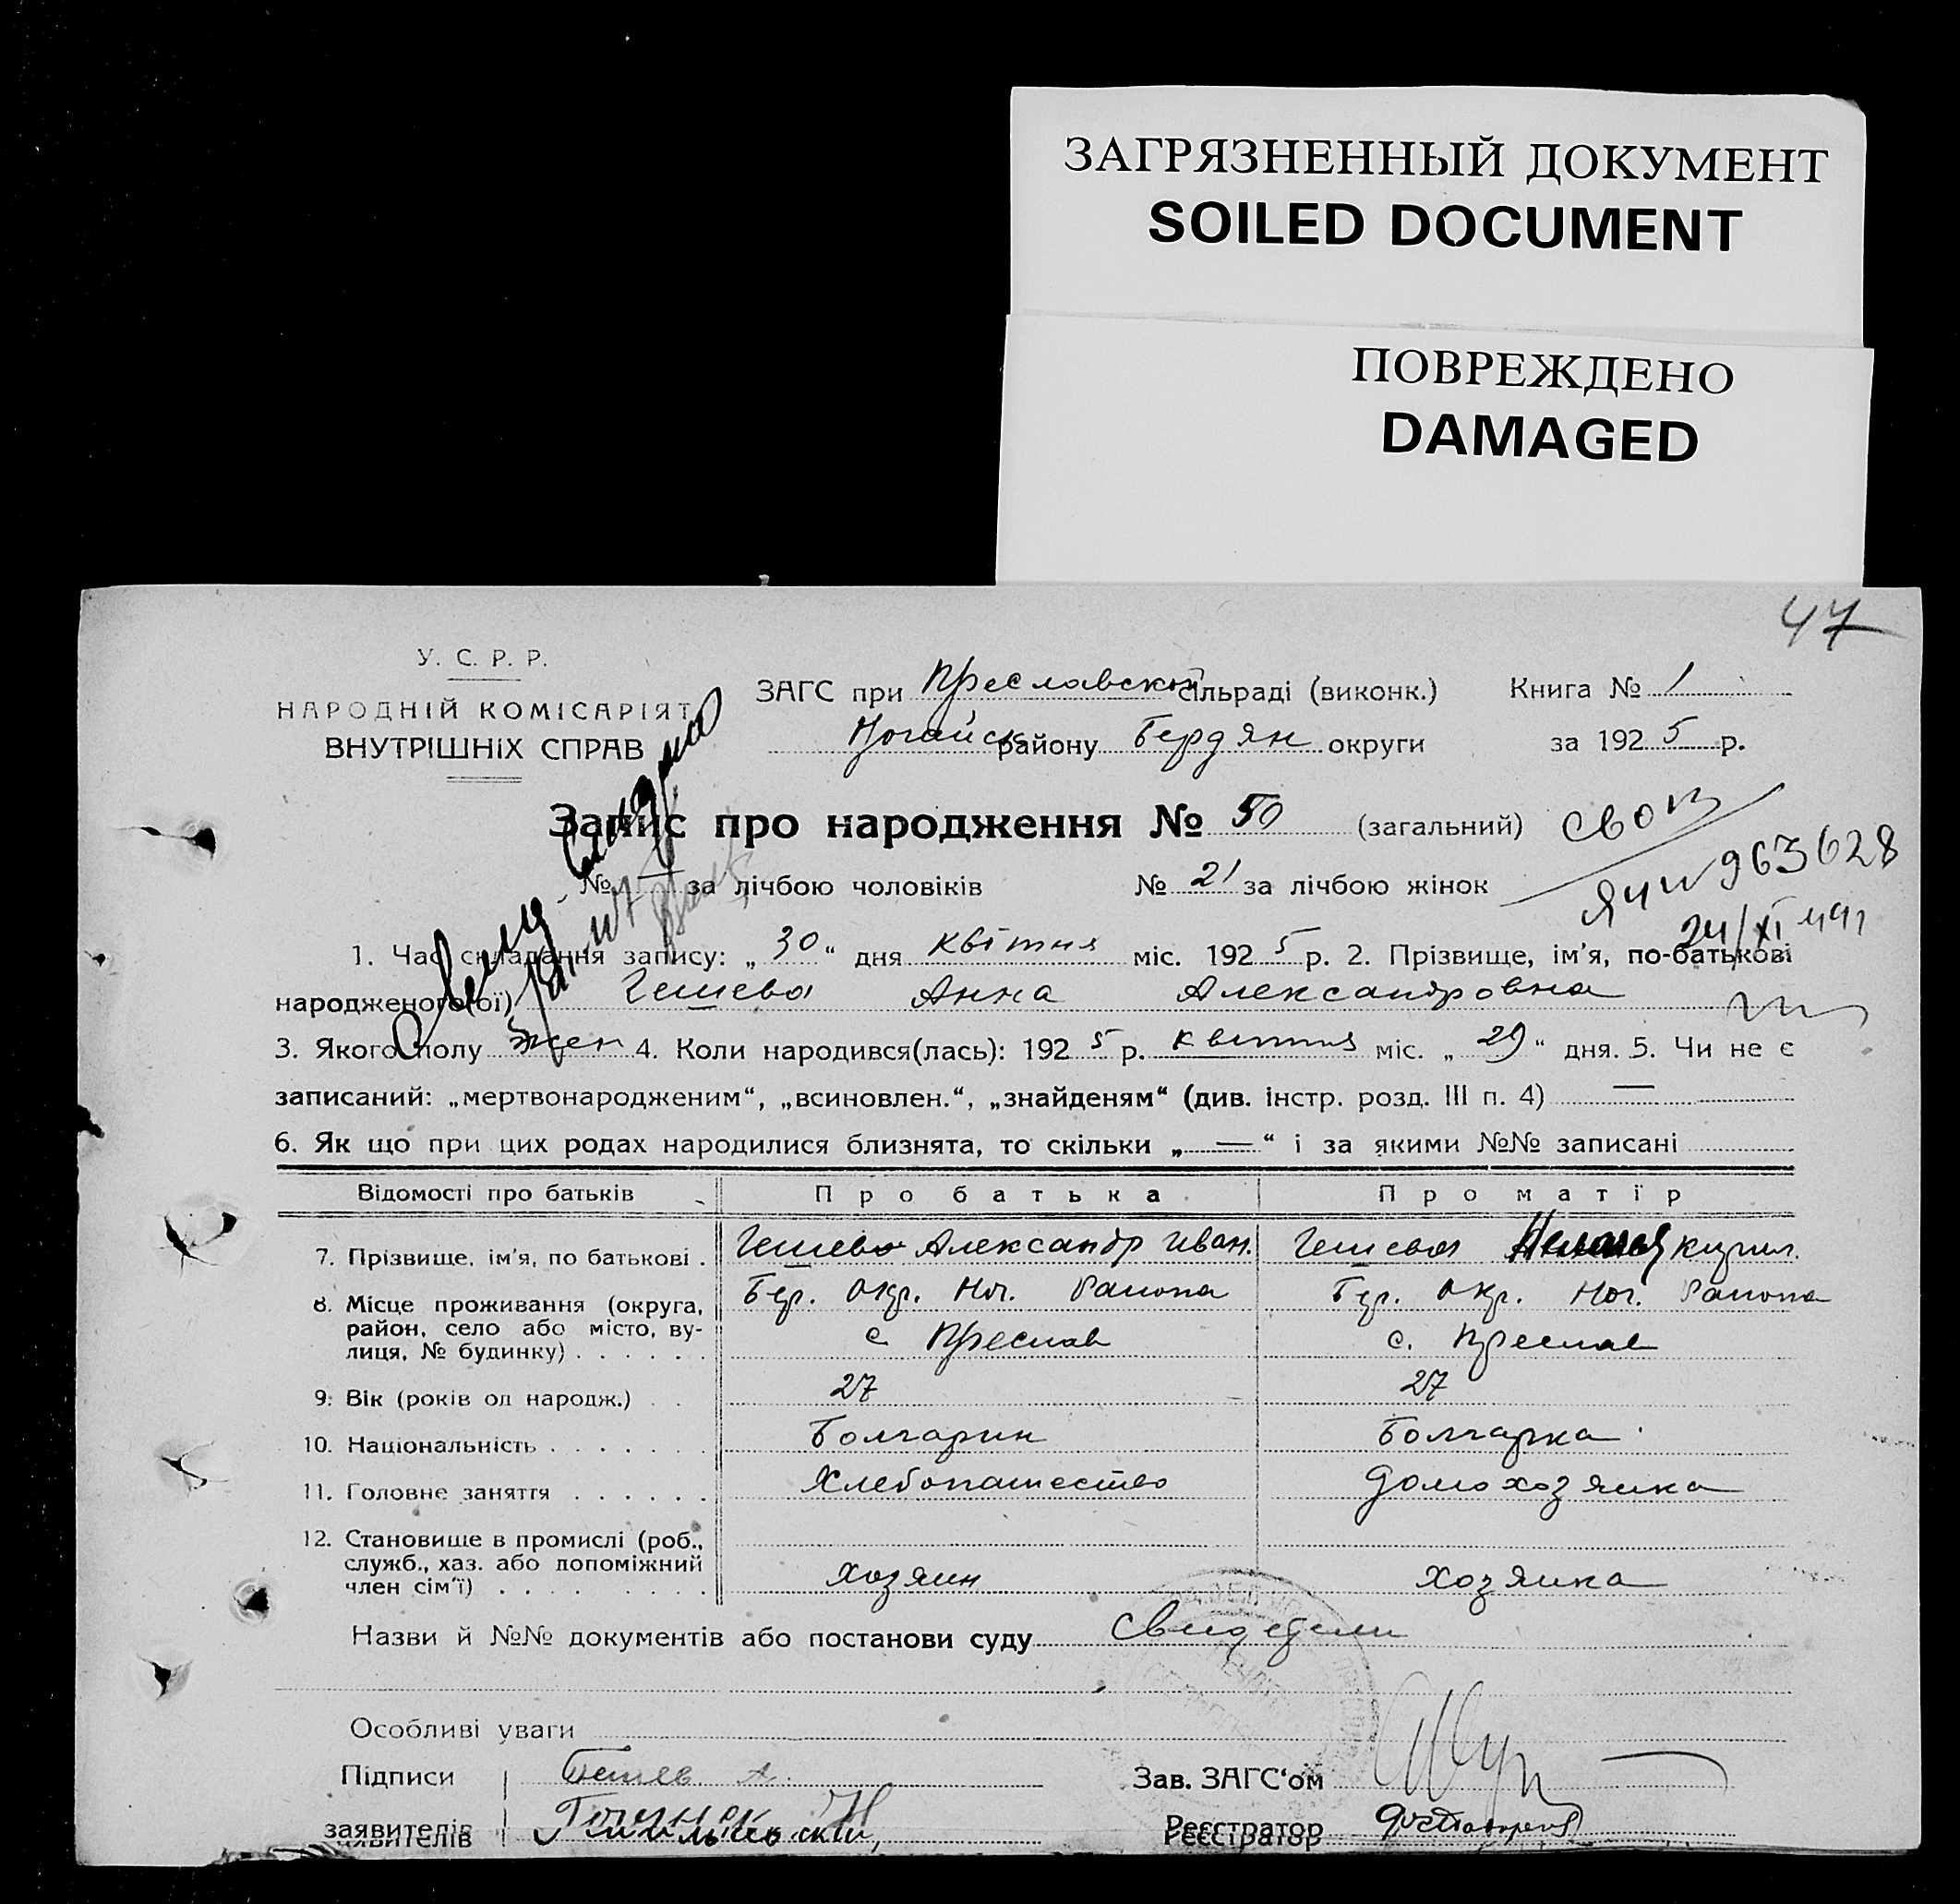 ЗАГРЯЗНЕННЫЙ ДОКУМЕНТ
SOILED DOCUMENT
ПОВРЕЖДЕНО
DAMAGED
47
У. С. Р. Р.
НАРОДНІЙ КОМІСАРІЯТ
ВНУТРІШНІХ СПРАВ
ЗАГС при Преславской сільраді (виконк.) Книга № 1
Ногайск району Бердян округи за 1925 р.
Запис про народження № 50 (загальний)
№ — за лічбою чоловіків № 21 за лічбою жінок
963628
1. Час складання запису: „30“ дня квітня міс. 1925 р. 2. Прізвище, ім'я, по-батькові
народженого(ої) Гешева Анна Александровна
3. Якого полу жен 4. Коли народився(лась): 1925 р. квітня міс. „29“ дня. 5. Чи не є
записаний: „мертвонародженим“, „всиновлен.“, „знайденям“ (див. інстр. розд. III п. 4) —
6. Як що при цих родах народилися близнята, то скільки „—“ і за якими №№ записані
Відомості про батьків Про батька Про матір
7. Прізвище, ім'я, по батькові . Гешев Александр Иван. Гешева Кирил.
8. Місце проживання (округа, Бер. Окр. Ног. Района Бер. Окр. Ног. Района
район, село або місто, ву-
лиця, № будинку) . . . . . . с Преслав с. Преслав
9. Вік (років од народж.) . . 27 27
10. Національність . . . . . . . Болгарин Болгарка
11. Головне заняття . . . . . . Хлебопашество домохозяйка
12. Становище в промислі (роб.,
служб., хаз. або допоміжний
член сім'ї) . . . . . . . . хозяин хозяйка
Назви й №№ документів або постанови суду Свидетели
Особливі уваги
Підписи Гешев А. Зав. ЗАГС'ом
заявителів Реєстратор
заявителів Реєстратор